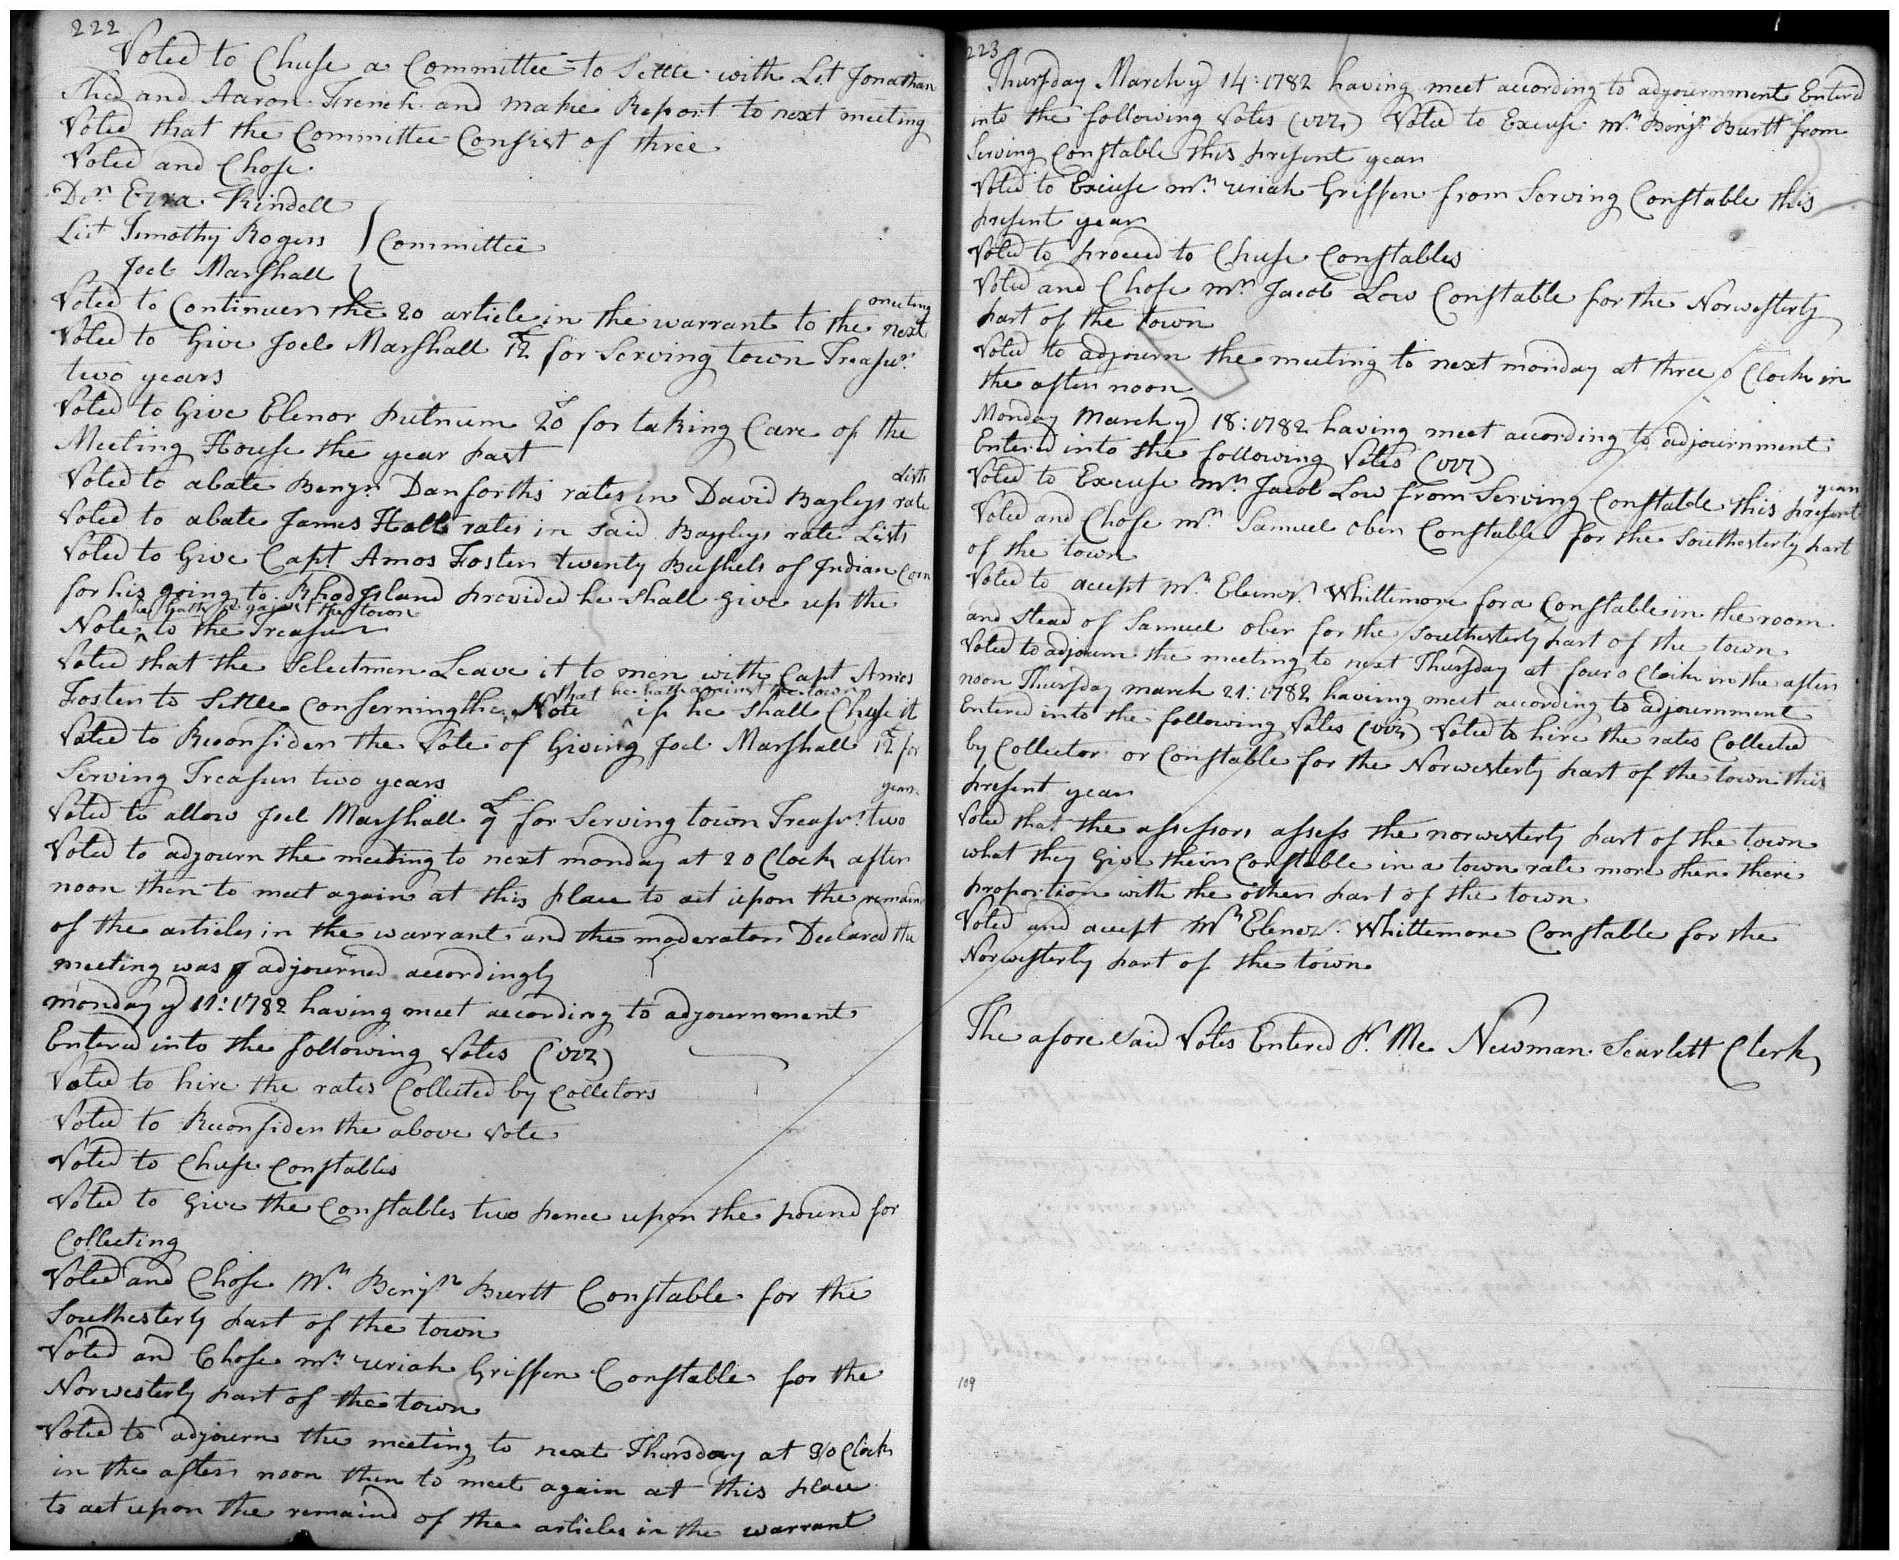 222
Voted to Chuse a Committee to Settle with Let Jonathan
Shed and Aaron French and make Report to next meeting
Voted that the Committee Consist of three
Voted and Chose
Dn Ezra Kindell
Let Timothy Rogers } Committee
Joel Marshall
meeting
Voted to Continuer the 20 article in the warrant to the next
Voted to Give Joel Marshall 12£ for Serving town Treasur
two years
Voted to Give Elenor Putnum 20s for taking Care of the
Meeting House the year past
Lists
Voted to abate Benjn Danforths rates in David Bayleys rate
Voted to abate James Halls rates in said Bayleys rate Lists
Voted to Give Capt Amos Foster twenty Bushels of Indian Corn
for his going to Rhod Island provided he shall give up the
he hath against the town
Note ^ to the Treasurer
Voted that the Selectmen Leave it to men with Capt Amos
that he hath against the town
Foster to Settle conserning the Note ^ if he shall Chuse it
Voted to Reconsider the Vote of Giving Joel Marshall 12£ for
Serving Treasur two years
years
Voted to allow Joel Marshall 9£ for Serving town Treasr two
Voted to adjourn the meeting to next monday at 2 o Clock after
noon then to meet again at this place to act upon the remaind
of the articles in the warrant and the moderator Declared the
meeting was adjourned accordingly
monday ye 11: 1782 having meet according to adjournment
Entered into the following Votes (viz)
Voted to hire the rates Collected by Colletors
Voted to Reconsider the above Vote
Voted to Chuse Constables
Voted to Give the Constables two pence upon the pound for
Collecting
Voted and Chose Mr Benjn Burtt Constable for the
Southesterly part of the town
Voted and Chose mr uriah Griffen Constable for the
Norwesterly part of the town
Voted to adjourn the meeting to next Thursday at 3 o Clock
in the after noon then to meet again at this place
to act upon the remaind of the articles in the warrant
223
Thursday March ye 14: 1782 having meet according to adjournment Entered
into the following Votes (viz) Voted to Excuse mr Benjn Burtt from
Serving Constable this present year
Voted to Excuse mr uriah Griffen from Serving Constable this
present year
Voted to proceed to Chuse Constables
Voted and Chose mr Jacob Low Constable for the Norwesterly
part of the town
Voted to adjourn the meeting to next monday at three o Clock in
the after noon
Monday March ye 18: 1782 having meet according to adjournment
Entered into the following Votes (viz)
year
Voted to Excuse mr Jacob Low from Serving Constable this present
Voted and Chose mr Samuel Ober Constable for the Southesterly part
of the town
Voted to accept mr Ebenezr Whittemore for a Constable in the room
and Stead of Samuel Ober for the Southesterly part of the town
Voted to adjourn the meeting to next Thursday at four o Clock in the after
noon Thursday march 21: 1782 having meet according to adjournment
Entered into the following Votes (viz) Voted to hire the rates Collected
by Collector or Constable for the Norwesterly part of the town this
present year
Voted that the assessors assess the norwesterly part of the town
what they Give their Constable in a town rate more then there
proportion with the other part of the town
Voted and accept Mr Ebenezr Whittemore Constable for the
Norwesterly part of the town
The afore said Votes Entered Pr Me Newman Scarlett Clerk
109